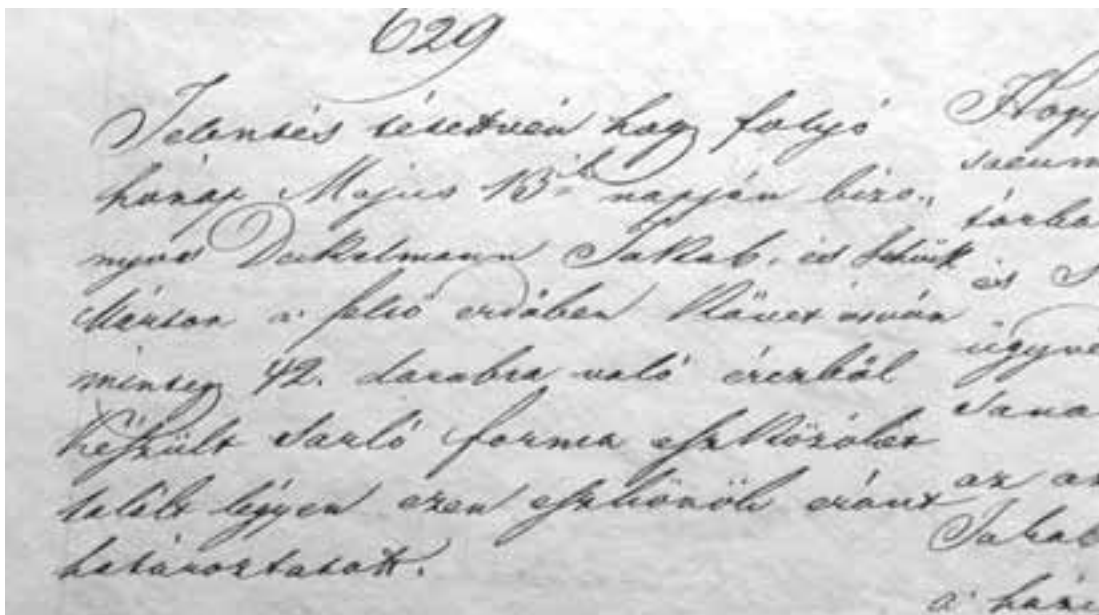 629
Jelentés tétetvén hogy folyó
hónap Majus 13ik napján bizo„
nyos Deckelmann Jakab, és Schück
Márton a' felső erdőben Követ ásván
mintegy 42. darabra való érczből
készült Sarló forma eszközöket
talált légyen ezen eszközök eránt
határoztatott.
Hogy
tárba
és
ügyvé
az
Jakab
a' háza